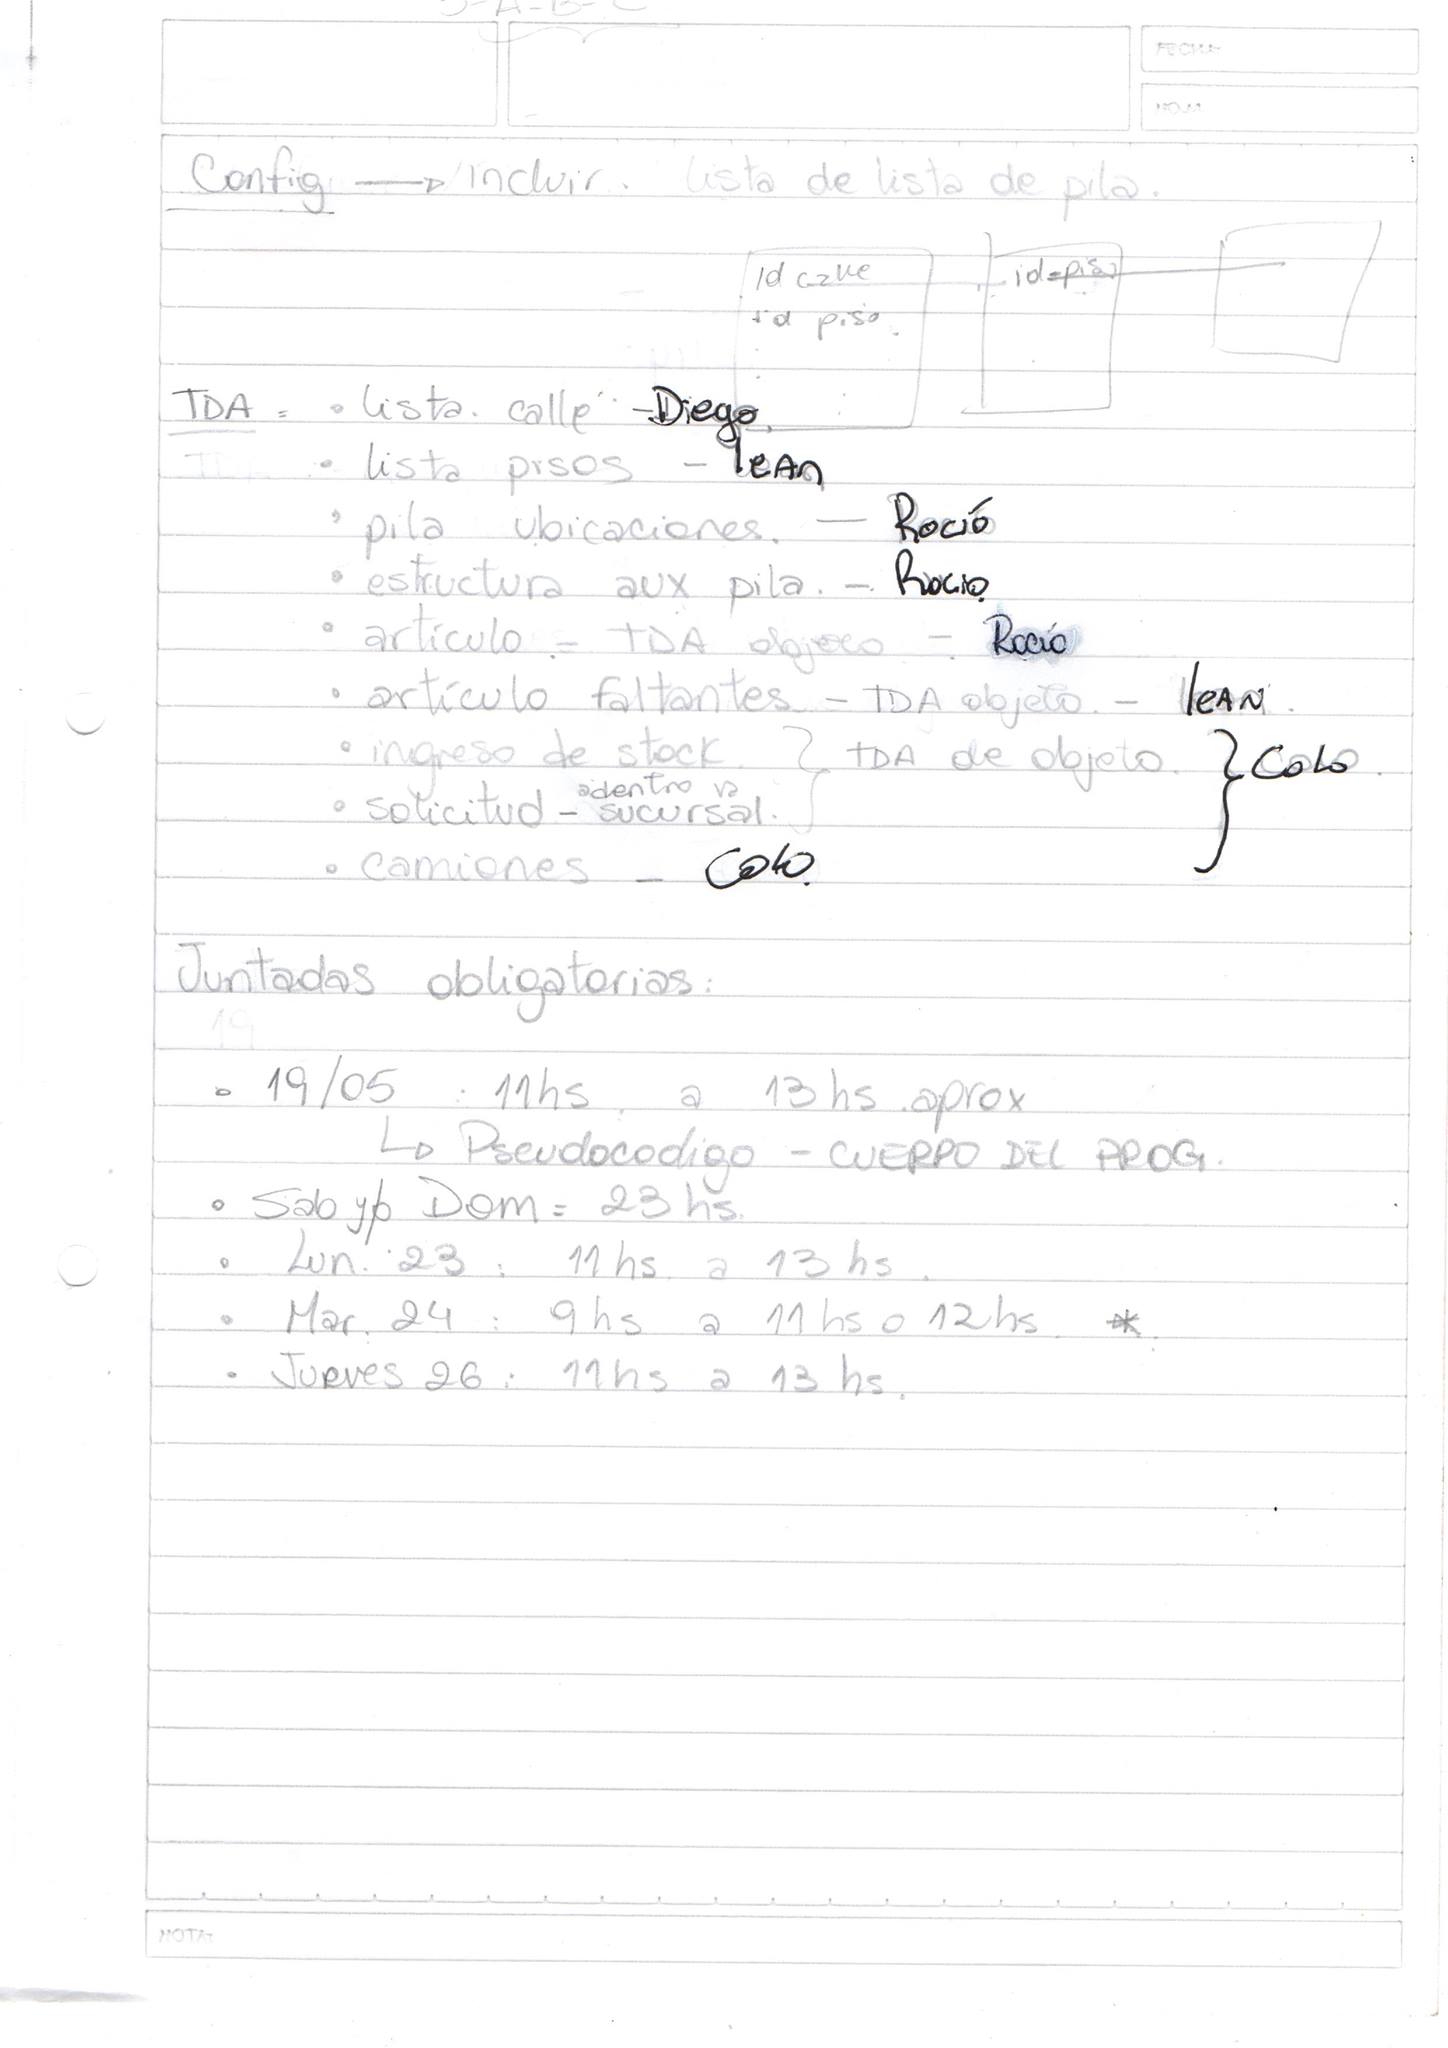 FECHA
Config → incluir. lista de lista de pila.
id calle
id piso.
id=piso
TDA = • lista calle - Diego
• lista pisos - leAN
• pila ubicaciones. - Roció
• estructura aux pila. - Rocio
• artículo = TDA objeto - Roció
• artículo faltantes - TDA objeto. - leAN.
• ingreso de stock } TDA de objeto. } Colo.
adentro va
• solicitud - sucursal.
• camiones - Colo.
Juntadas obligatorias:
19
• 19/05 : 11hs a 13 hs aprox
↳ Pseudocodigo - CUERPO DEL PROG.
• Sab y/o Dom = 23 hs.
• Lun. 23 : 11 hs a 13 hs.
• Mar. 24 : 9hs a 11 hs o 12hs *
• Jueves 26 : 11hs a 13 hs.
NOTAS